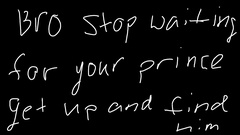 Bro stop waiting
for your prince
get up and find
him